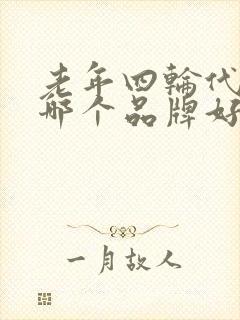 老年四轮代
哪个品牌好
一月故人